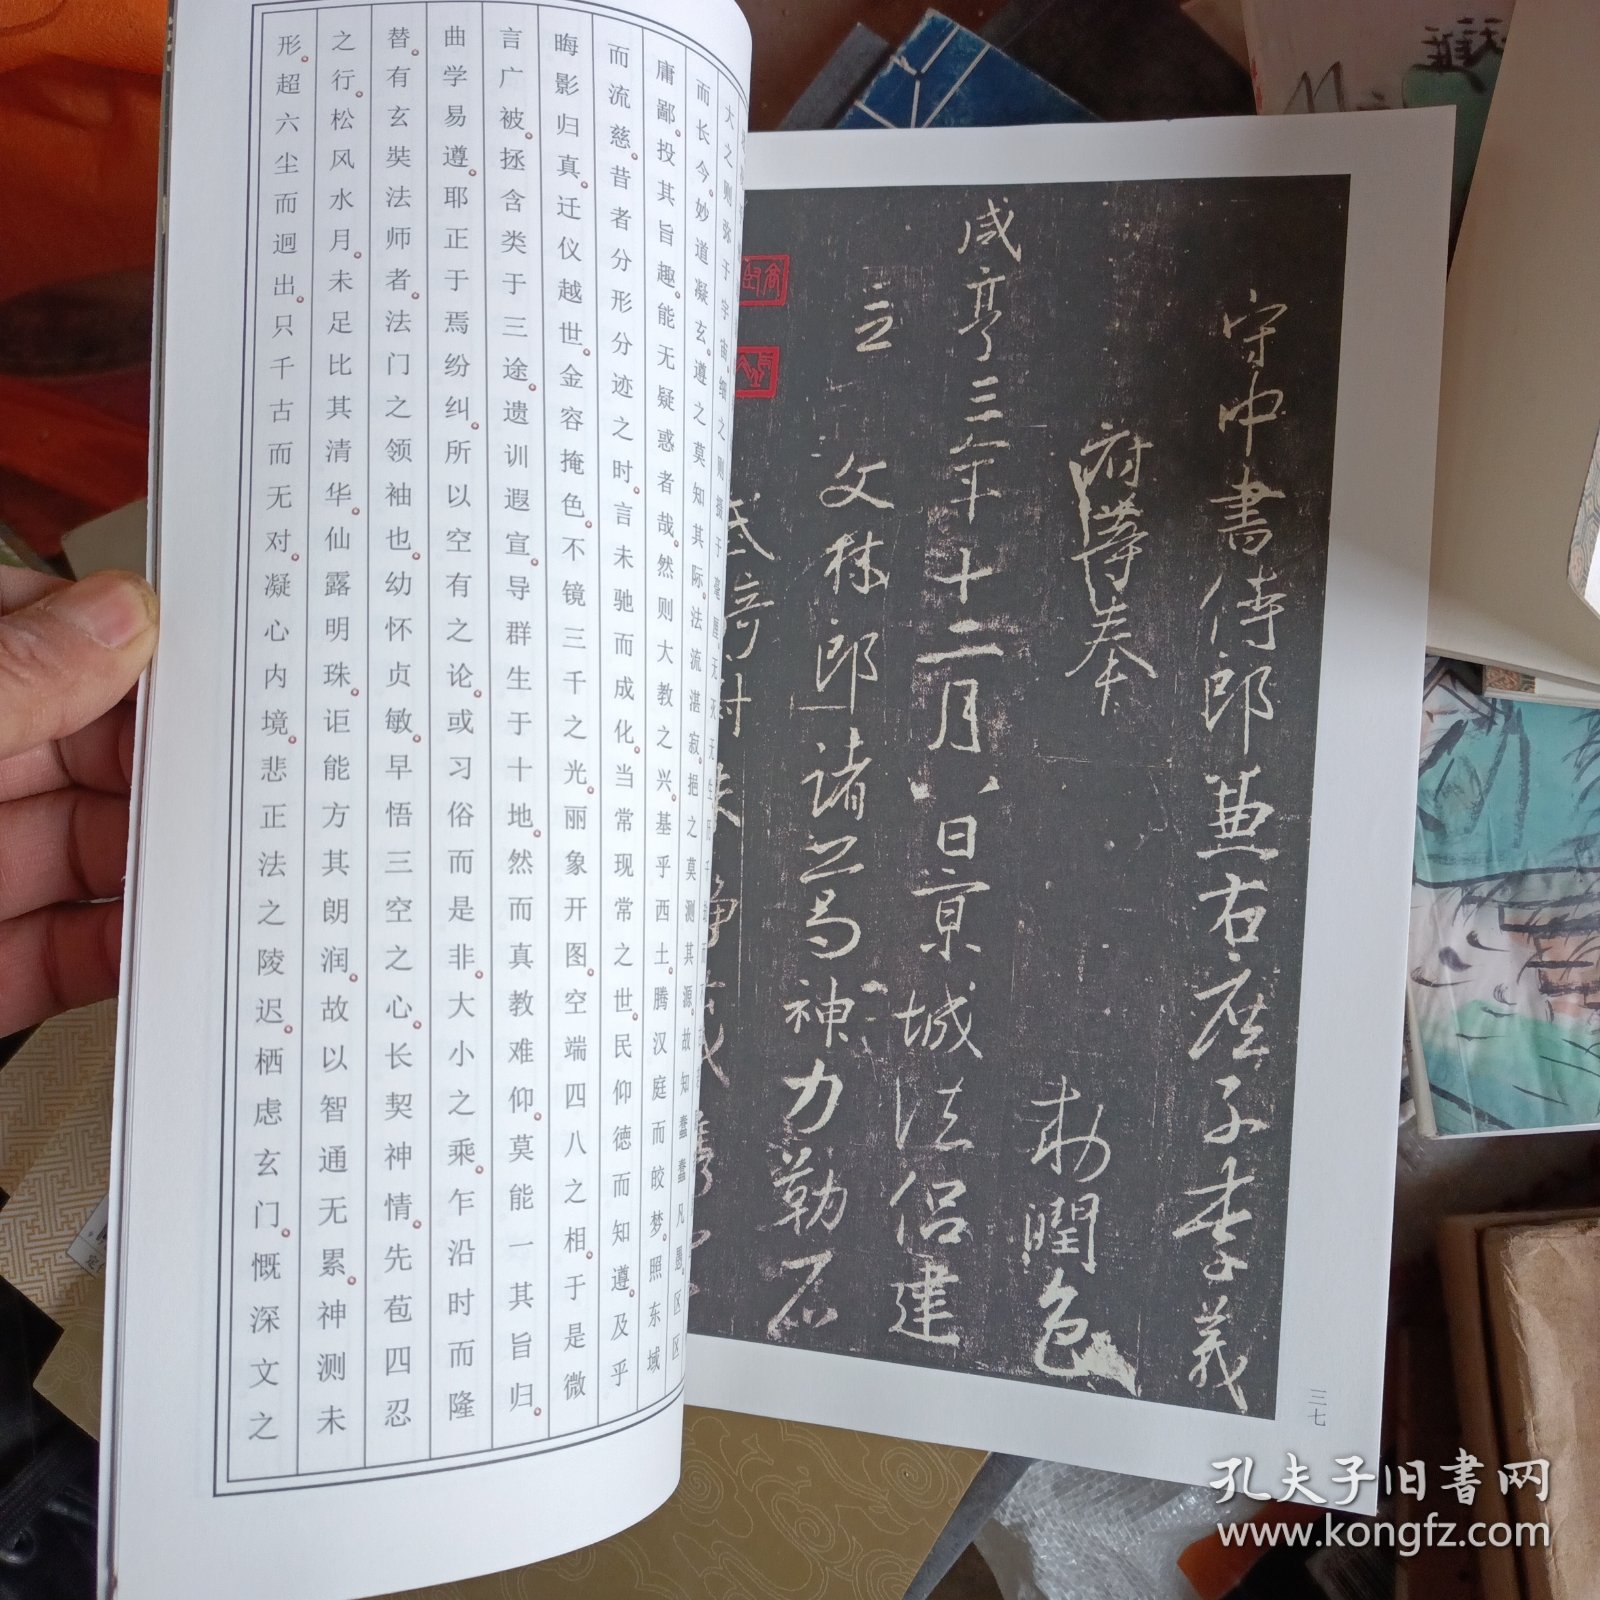 守中書侍郎兼右庶子李義
府等奉　敕潤色
咸亨三年十二月八日京城法侶建
立
文林郎諸葛神力勒石
三七
大之则弥于宇宙。细之则摄于毫厘。无灭无生历千劫而
而长今。妙道凝玄。遵之莫知其际。法流湛寂。挹之莫测其源。故知蠢蠢凡愚。区区
庸鄙。投其旨趣。能无疑惑者哉。然则大教之兴。基乎西土。腾汉庭而皎梦。照东域
而流慈。昔者分形分迹之时。言未驰而成化。当常现常之世。民仰德而知遵。及乎
晦影归真。迁仪越世。金容掩色。不镜三千之光。丽象开图。空端四八之相。于是微
言广被。拯含类于三途。遗训遐宣。导群生于十地。然而真教难仰。莫能一其旨归。
曲学易遵。耶正于焉纷纠。所以空有之论。或习俗而是非。大小之乘。乍沿时而隆
替。有玄奘法师者。法门之领袖也。幼怀贞敏。早悟三空之心。长契神情。先苞四忍
之行。松风水月。未足比其清华。仙露明珠。讵能方其朗润。故以智通无累。神测未
形。超六尘而迥出。只千古而无对。凝心内境。悲正法之陵迟。栖虑玄门。慨深文之
孔夫子旧書网
www.kongfz.com